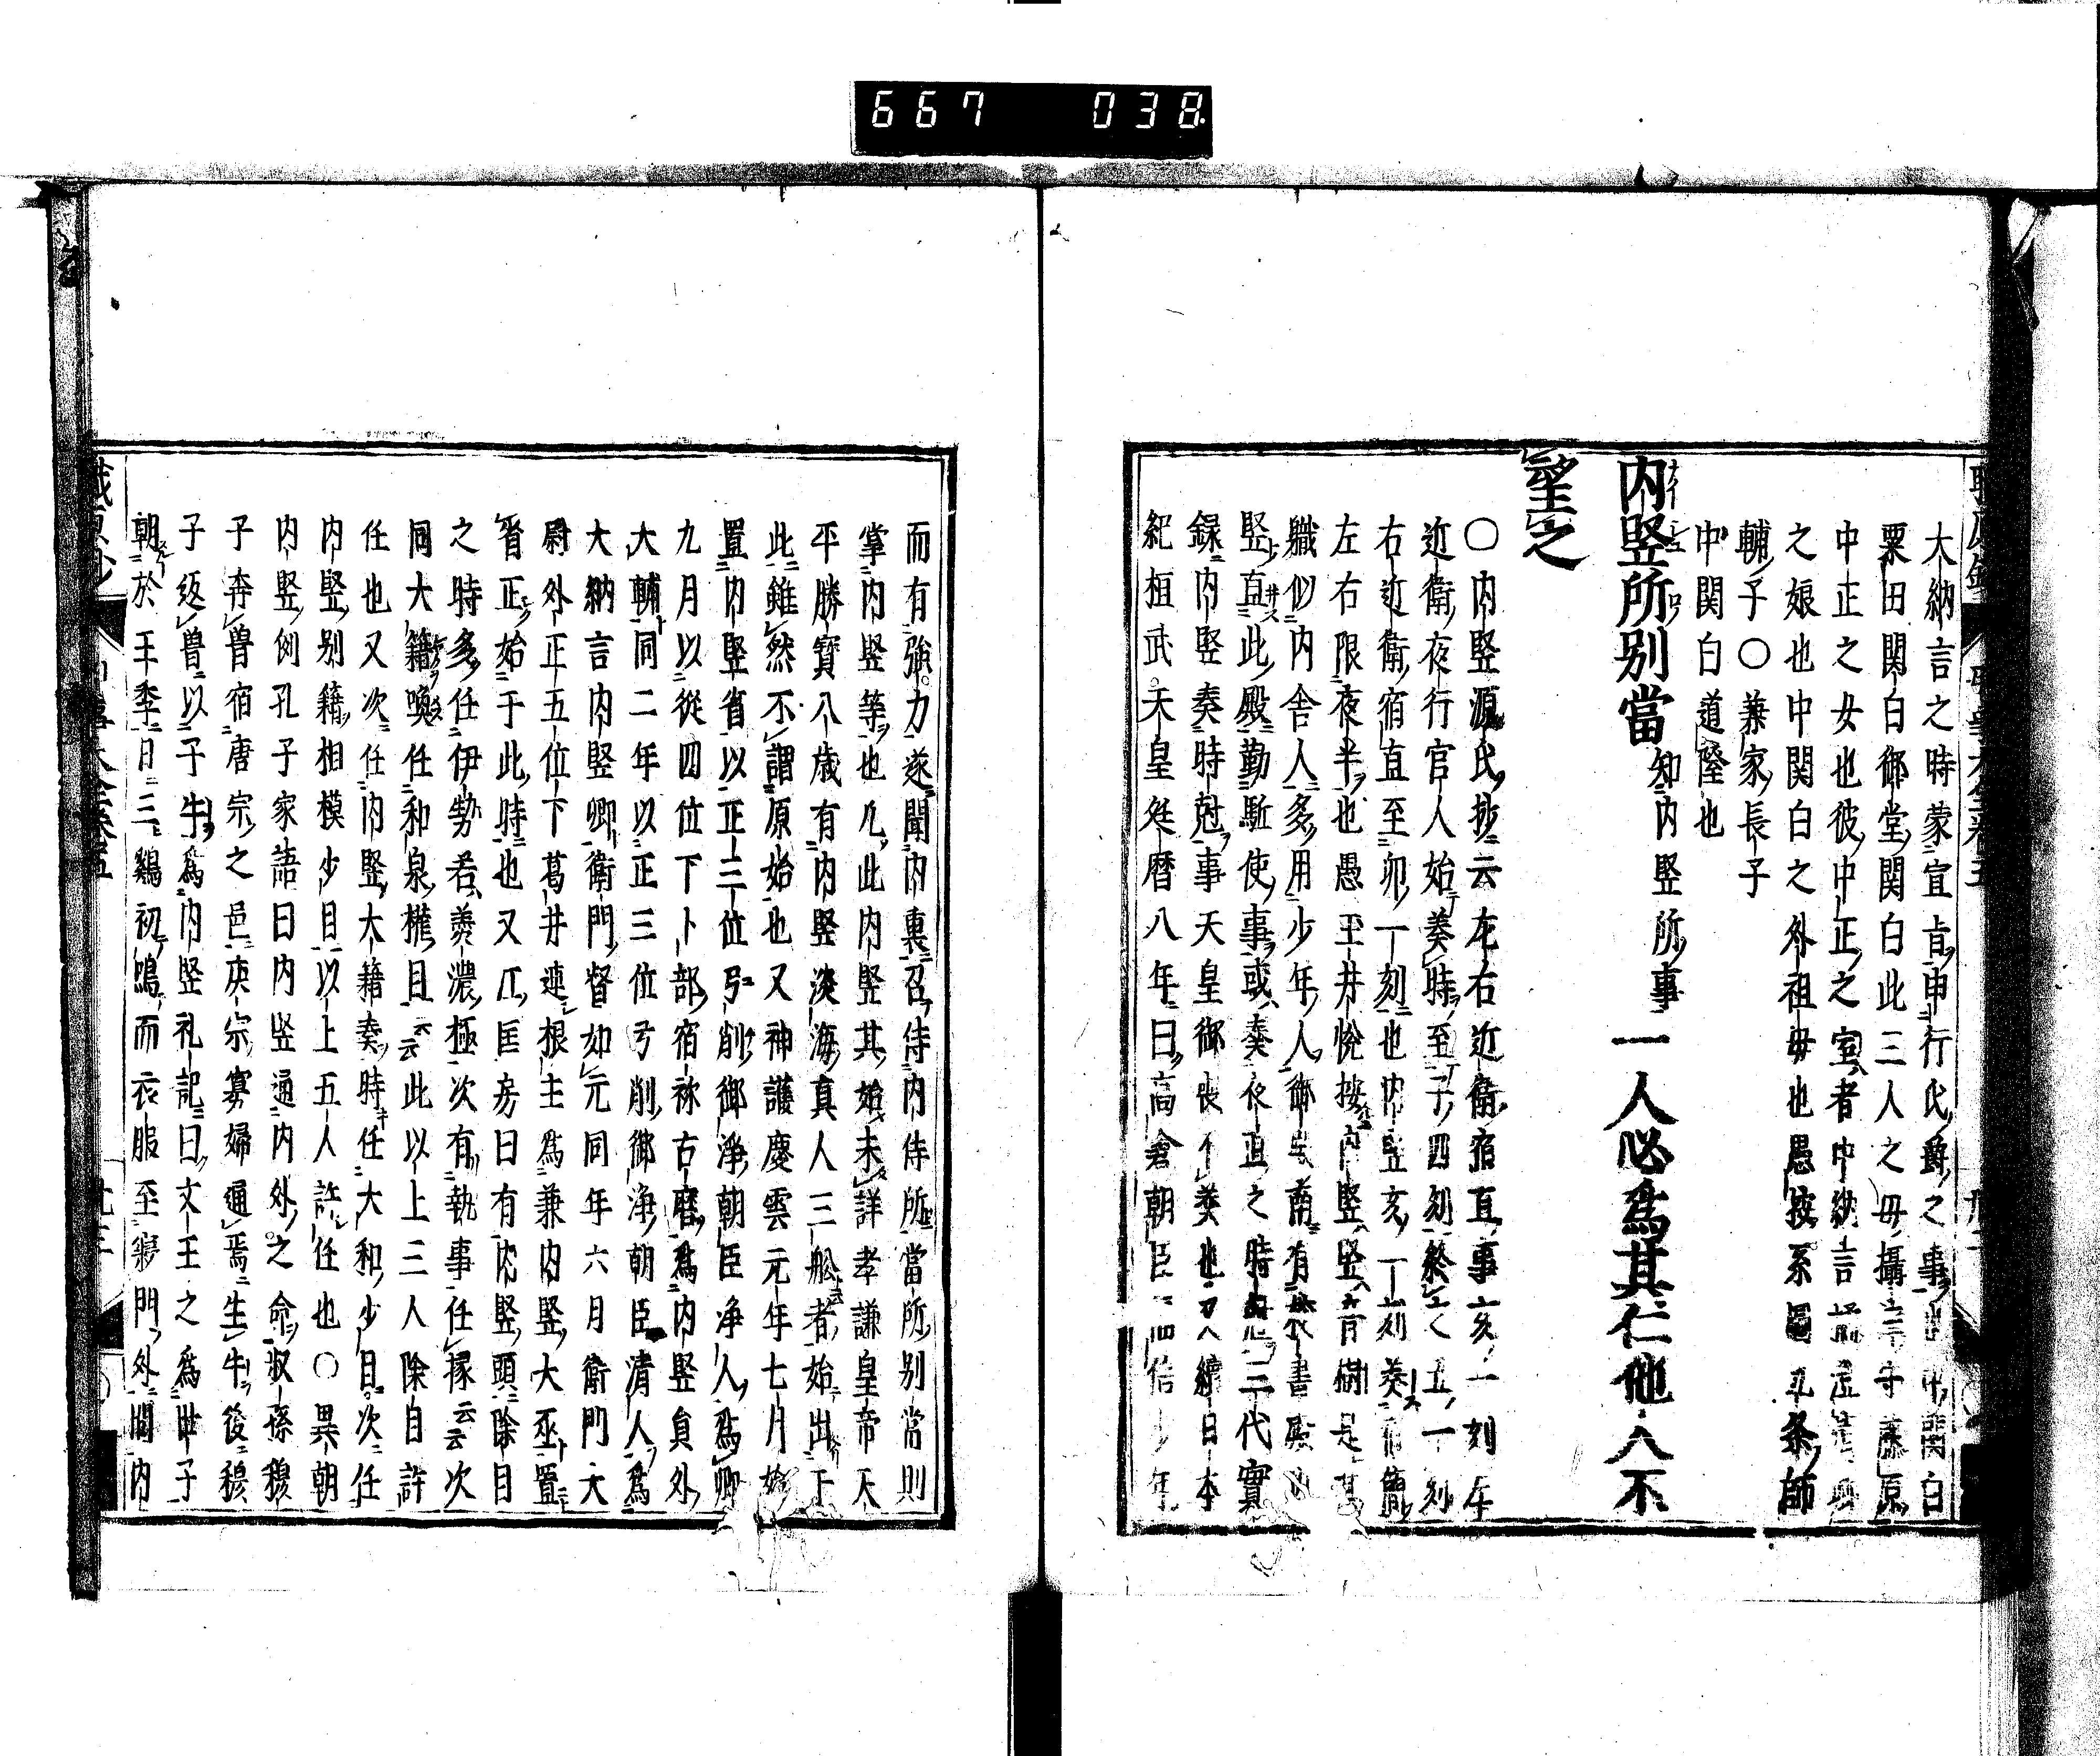 667 038
大納言之時蒙宣旨申行氏爵之事 関白
粟田関白御堂関白此三人之母攝 守藤原
中正之女也彼中正之室者中納言
之娘也中関白之外祖母也愚按系圖九条師
輔子〇兼家長子
中関白道隆也
内竪所別當知内竪所事一人必為其仁他人不
望之
〇内竪源氏抄云左右近衛宿直事亥一刻左
近衛夜行官人始奏時至子四刻終之丑一刻
右近衛宿直至卯一刻也内竪亥一刻奏 簡
左右限夜半也愚 井悦按内竪竪 是
職似内舎人多用少年人御 南有 書殿
竪直此殿勤駈使事或奏夜直之時 三代實
録内竪奏時尅事天皇御喪不奏也 續日本
紀桓武天皇延暦八年曰高倉朝臣 信少年
而有強力遂聞内裏召侍内侍所當所別當則
掌内竪等也凡此内竪其始未詳孝謙皇帝天
平勝寶八歳有内竪淡海真人三舩者始出于
此雖然不謂原始也又神護慶雲元年七月始
置内竪省以正三位弓削御浄朝臣浄人為卿
九月以従四位下卜部宿祢古麿為内竪員外
大輔同二年以正三位弓削御浄朝臣清人為
大納言内竪卿衛門督如元同年六月衛門大
尉外正五位下葛井連根主為兼内竪大丞置
省正始于此時也又江匡房曰有内竪頭除目
之時多任伊勢若美濃極次有執事任掾云云次
同大籍喚任和泉権目云云此以上三人除自許
任也又次任内竪大籍奏時任大和少目次任
内竪別籍相模少目以上五人許任也〇異朝
内竪例孔子家語曰内竪通内外之命叔孫穆
子奔魯宿唐宗之邑庚宗寡婦通焉生牛後穆
子返魯以子牛為内竪礼記曰文王之為世子
朝於王季日三鷄初鳴而衣服至寝門外問内